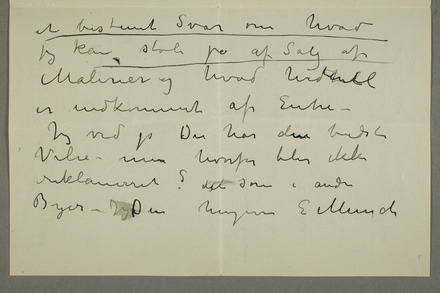 et bestemt Svar om hvad
jeg kan stole på af Salg af
Malerier og hvad
er indkommet af Entre –
Jeg ved jo De har den bedste
Vilje – men hvorfor blir ikke
reklameret? det som i andre
Byer – Deres hengivne E Munch